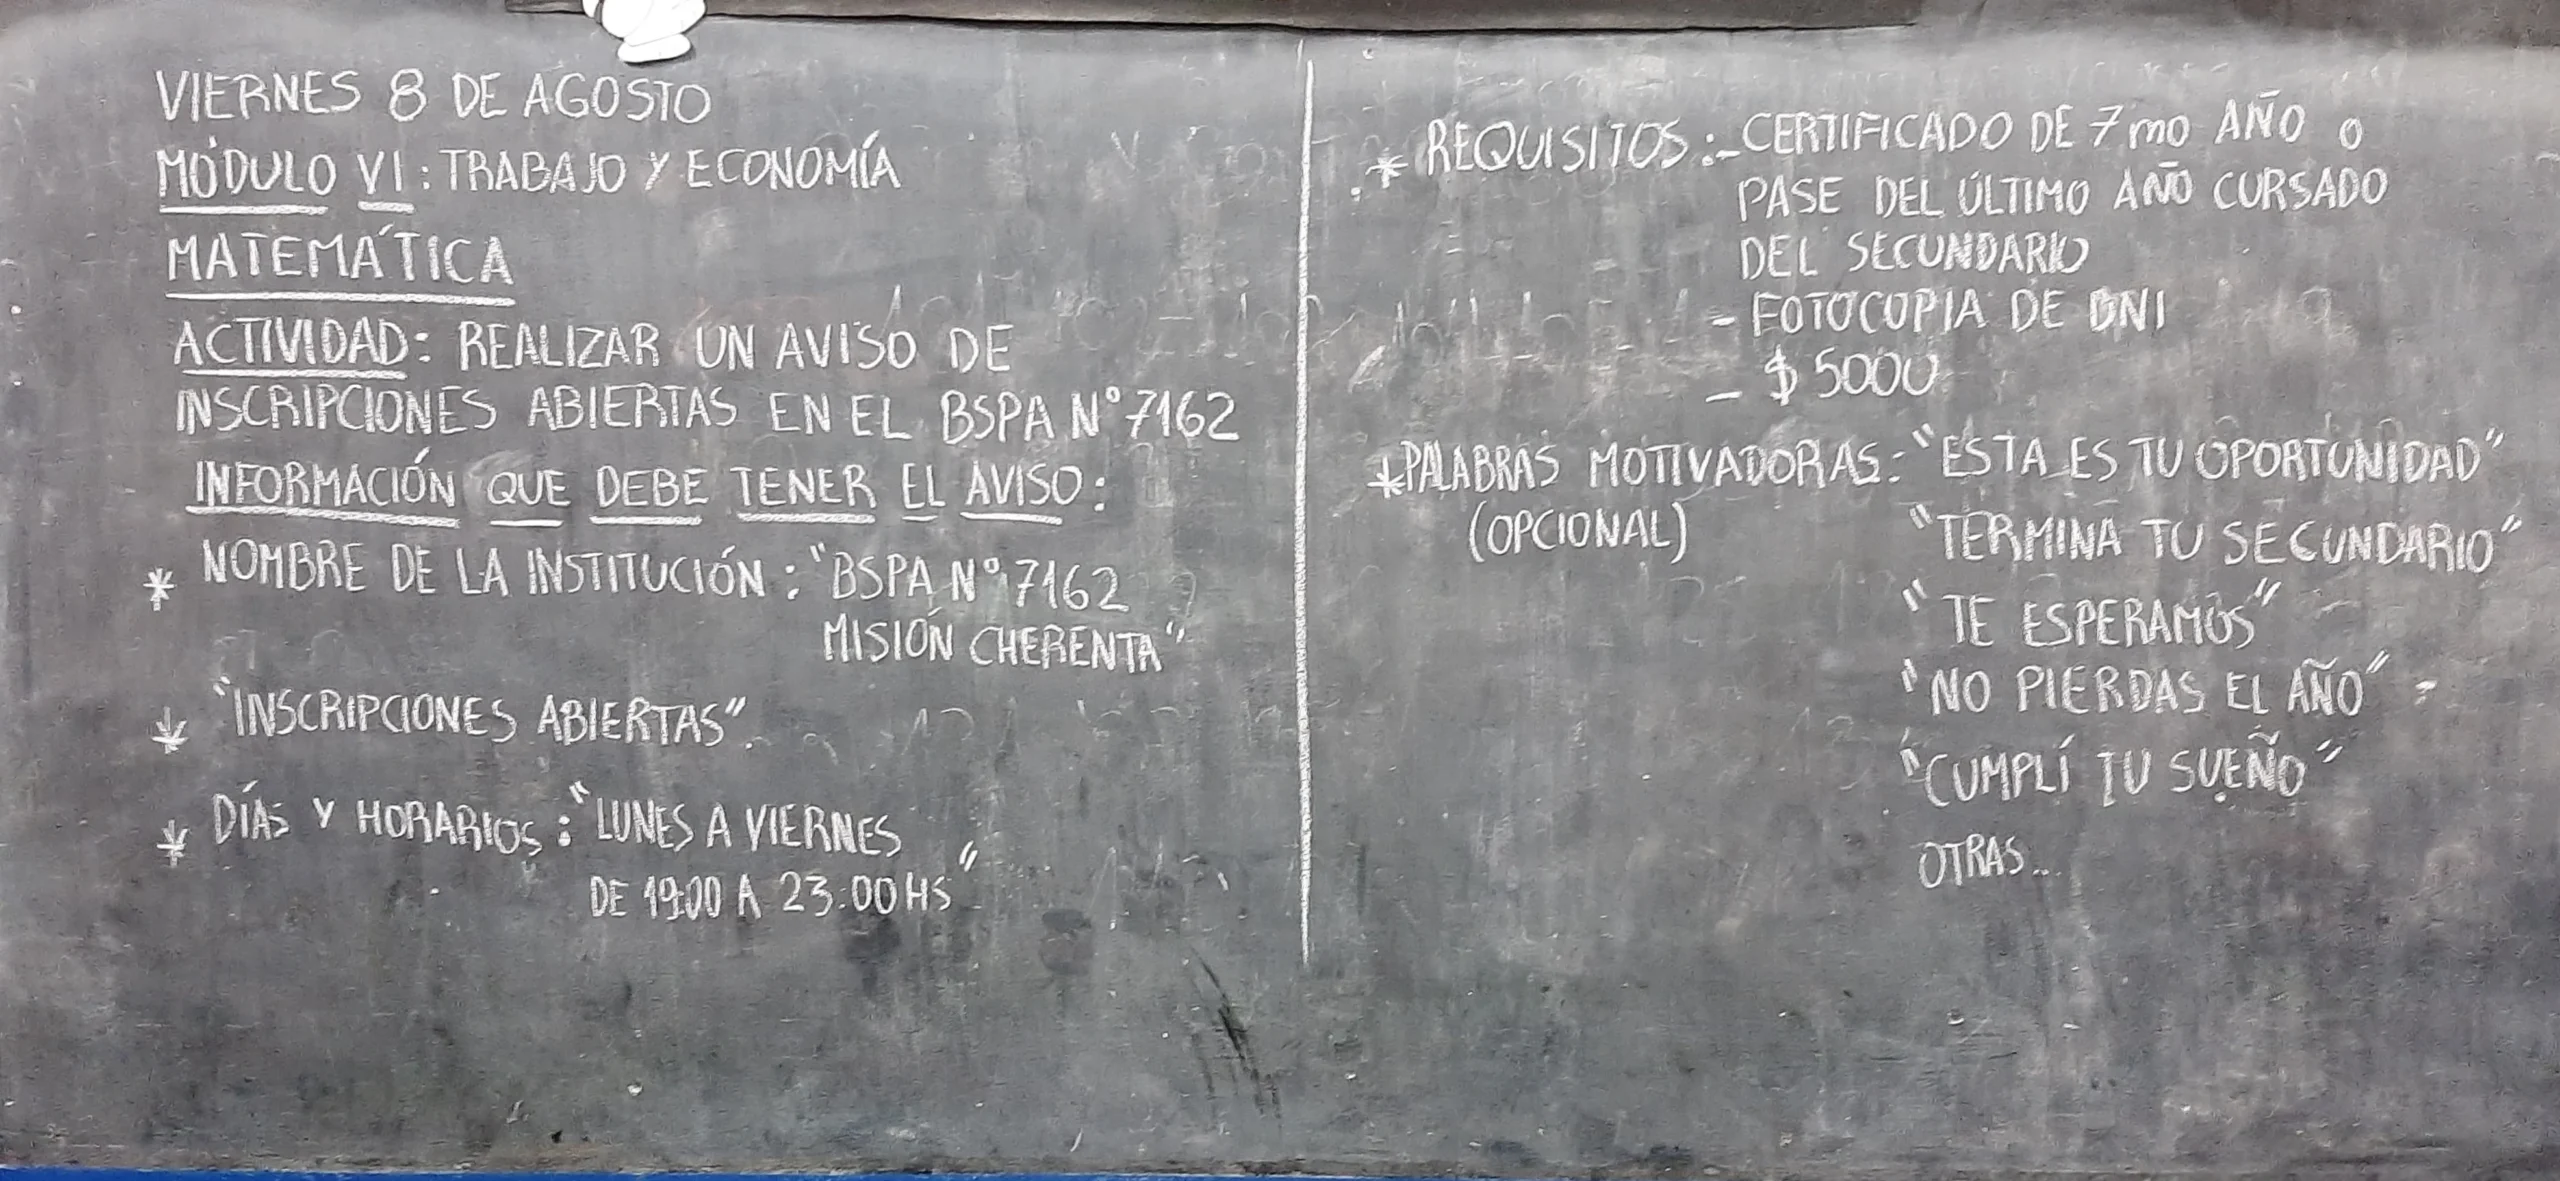 VIERNES 8 DE AGOSTO
MÓDULO VI: TRABAJO Y ECONOMÍA
MATEMÁTICA
ACTIVIDAD: REALIZAR UN AVISO DE
INSCRIPCIONES ABIERTAS EN EL BSPA N° 7162
INFORMACIÓN QUE DEBE TENER EL AVISO:
* NOMBRE DE LA INSTITUCIÓN: "BSPA N° 7162
MISIÓN CHERENTA"
* "INSCRIPCIONES ABIERTAS".
* DÍAS Y HORARIOS: "LUNES A VIERNES
DE 19:00 A 23:00 HS"
* REQUISITOS: - CERTIFICADO DE 7mo AÑO o
PASE DEL ÚLTIMO AÑO CURSADO
DEL SECUNDARIO
- FOTOCOPIA DE DNI
- $ 5000
* PALABRAS MOTIVADORAS: "ESTA ES TU OPORTUNIDAD"
(OPCIONAL) "TERMINA TU SECUNDARIO"
"TE ESPERAMOS"
"NO PIERDAS EL AÑO" -
"CUMPLÍ TU SUEÑO"
OTRAS...